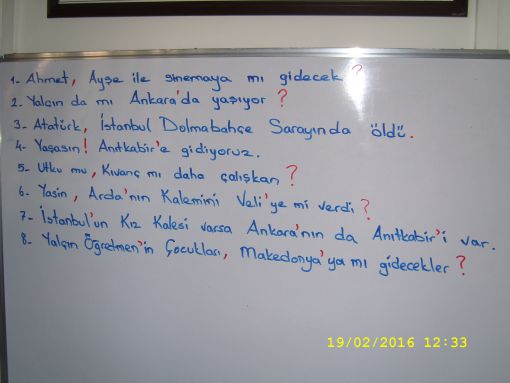 1- Ahmet, Ayşe ile sinemaya mı gidecek?
2- Yalçın da mı Ankara'da yaşıyor?
3- Atatürk, İstanbul Dolmabahçe Sarayında öldü.
4- Yaşasın! Anıtkabir'e gidiyoruz.
5- Utku mu, Kıvanç mı daha çalışkan?
6- Yasin, Arda'nın Kalemini Veli'ye mi verdi?
7- İstanbul'un Kız Kalesi varsa Ankara'nın da Anıtkabir'i var.
8- Yalçın Öğretmen'in Çocukları, Makedonya'ya mı gidecekler?
19/02/2016 12:33